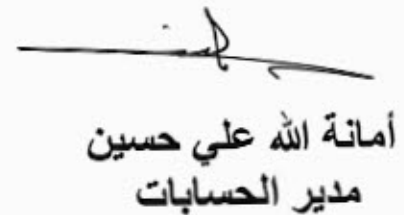 أمانة الله علي حسين
مدير الحسابات